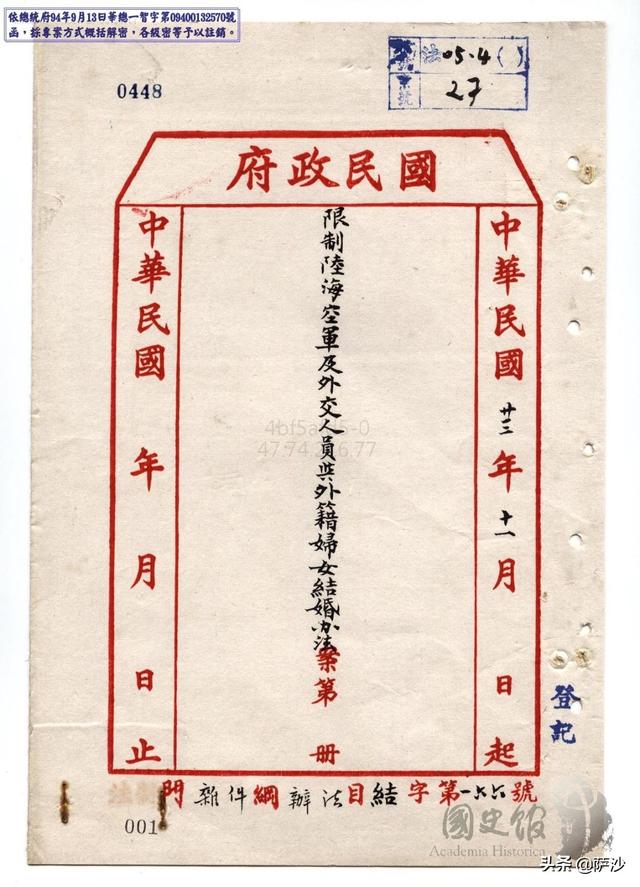 依總統府94年9月13日華總一智字第09400132570號
函，採專案方式概括解密，各級密等予以註銷。
法05.4( )
號 27
0448
府政民國
中華民國廿三年十一月 日起
限制陸海空軍及外交人員與外籍婦女結婚办法案第 册
中華民國 年 月 日止
登記
門雜件綱辦法目結字第一六六號
001
國史館
Academia Historica
47.74. 6.77
头条 @萨沙